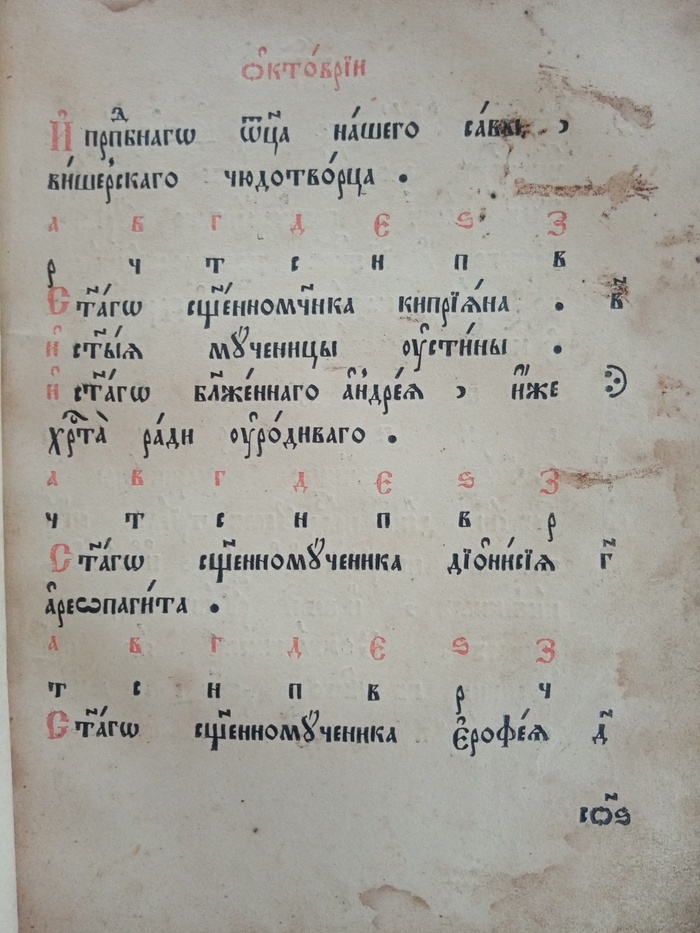 Ѻ҆ктѡ́врїи
И҆ прпⷣбнагѡ ѿц҃а на́шего са́вы,
ви́шерскаго чюдотво́рца .
а в г д є ѕ з
р ч т с н п в
Ст҃а́гѡ сщ҃е́нномч҃нка кипрїѧ́на . в҃
и҆ ст҃ы́ѧ мꙋ́ченицы ᲂу҆сти́ны .
и҆ ст҃а́гѡ бл҃же́ннаго а҆ндре́ѧ , и҆́же
хрⷭ҇та̀ ра́ди ᲂу҆ро́диваго .
а в г д є ѕ з
ч т с н п в р
Ст҃а́гѡ сщ҃е́нномꙋ́ченика дїѻни́сїѧ г҃
а҆реѡпаги́та .
а в г д є ѕ з
т с н п в р ч
Ст҃а́гѡ сщ҃е́нномꙋ́ченика є҆рофе́ѧ д҃
сѻ҃ѕ